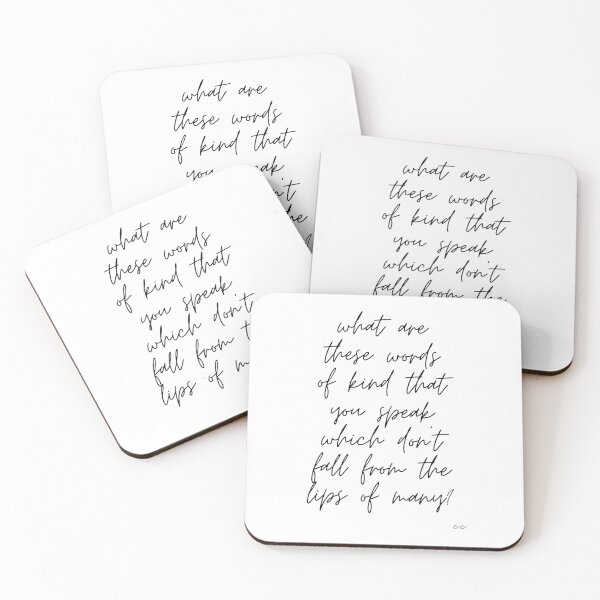 what are
these words
of kind that
you speak
what are
these words
of kind that
you speak
which don't
fall from the
what are
these words
of kind that
you speak
which don't
fall from
lips of
what are
these words
of kind that
you speak
which don't
fall from the
lips of many?
cc